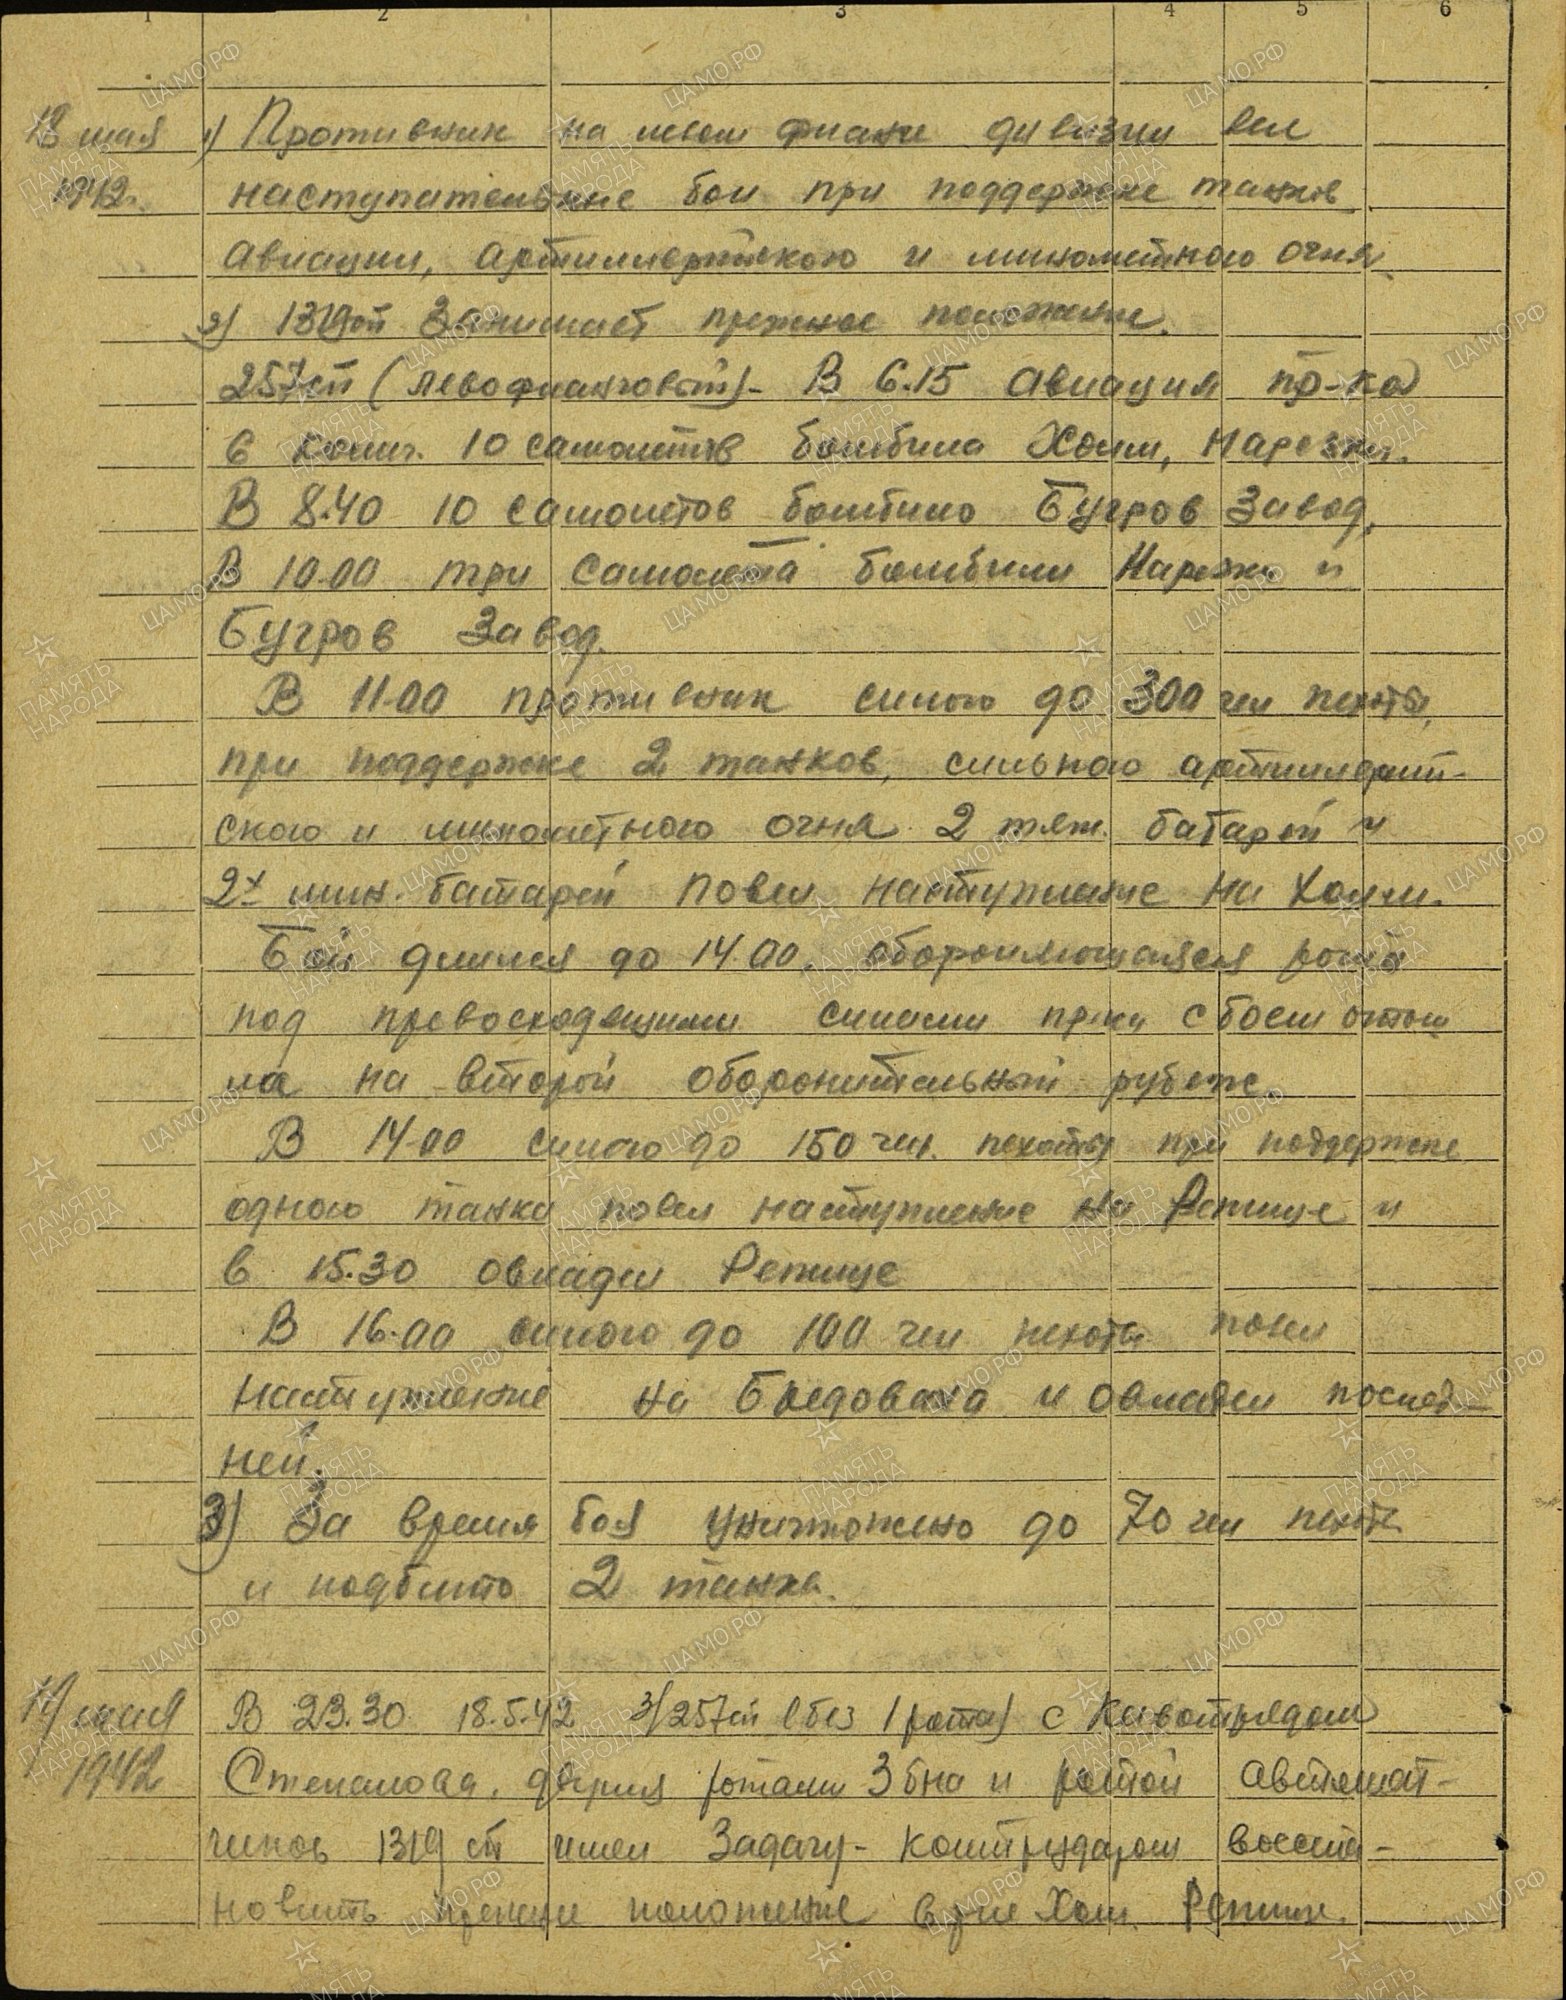 1 2 3 4 5 6
18 мая 1) Противник на левом фланге дивизии вел
1942г. наступательные бои при поддержке танков
авиации, артиллерийского и минометного огня.
2) 1319сп Занимает прежнее положение.
257сп (левофланговый) - В 6.15 авиация пр-ка
в колич. 10 самолетов бомбила Холм, Нарезки.
В 8.40 10 самолетов бомбило Бугров Завод.
В 10.00 три самолета бомбили Нарезки и
Бугров Завод.
В 11.00 противник силою до 300 чел пехоты,
при поддержке 2 танков, сильного артиллерий-
ского и минометного огня 2 тяж. батарей и
2х мин. батарей повел наступление на Холм.
Бой длился до 14.00. обороняющаяся рота
под превосходящими силами пр-ка с боем отош
ла на второй оборонительный рубеж.
В 14.00 силою до 150 чел. пехоты при поддержке
одного танка повел наступление на Репище и
в 15.30 овладел Репище
В 16.00 силою до 100 чел пехоты повел
наступление на и овладел послед-
ней.
3) За время боя уничтожено до 70 чел пехоты
и подбито 2 танка.
19 мая В 23.30 18.5.42 3/257сп (без 1 роты) с Кавотрядом
1942 двумя ротами 3 бна и ротой автомат-
чиков 1319 сп имел Задачу - контрударом восста-
новить прежнее положение в р-не Холм. Репище.